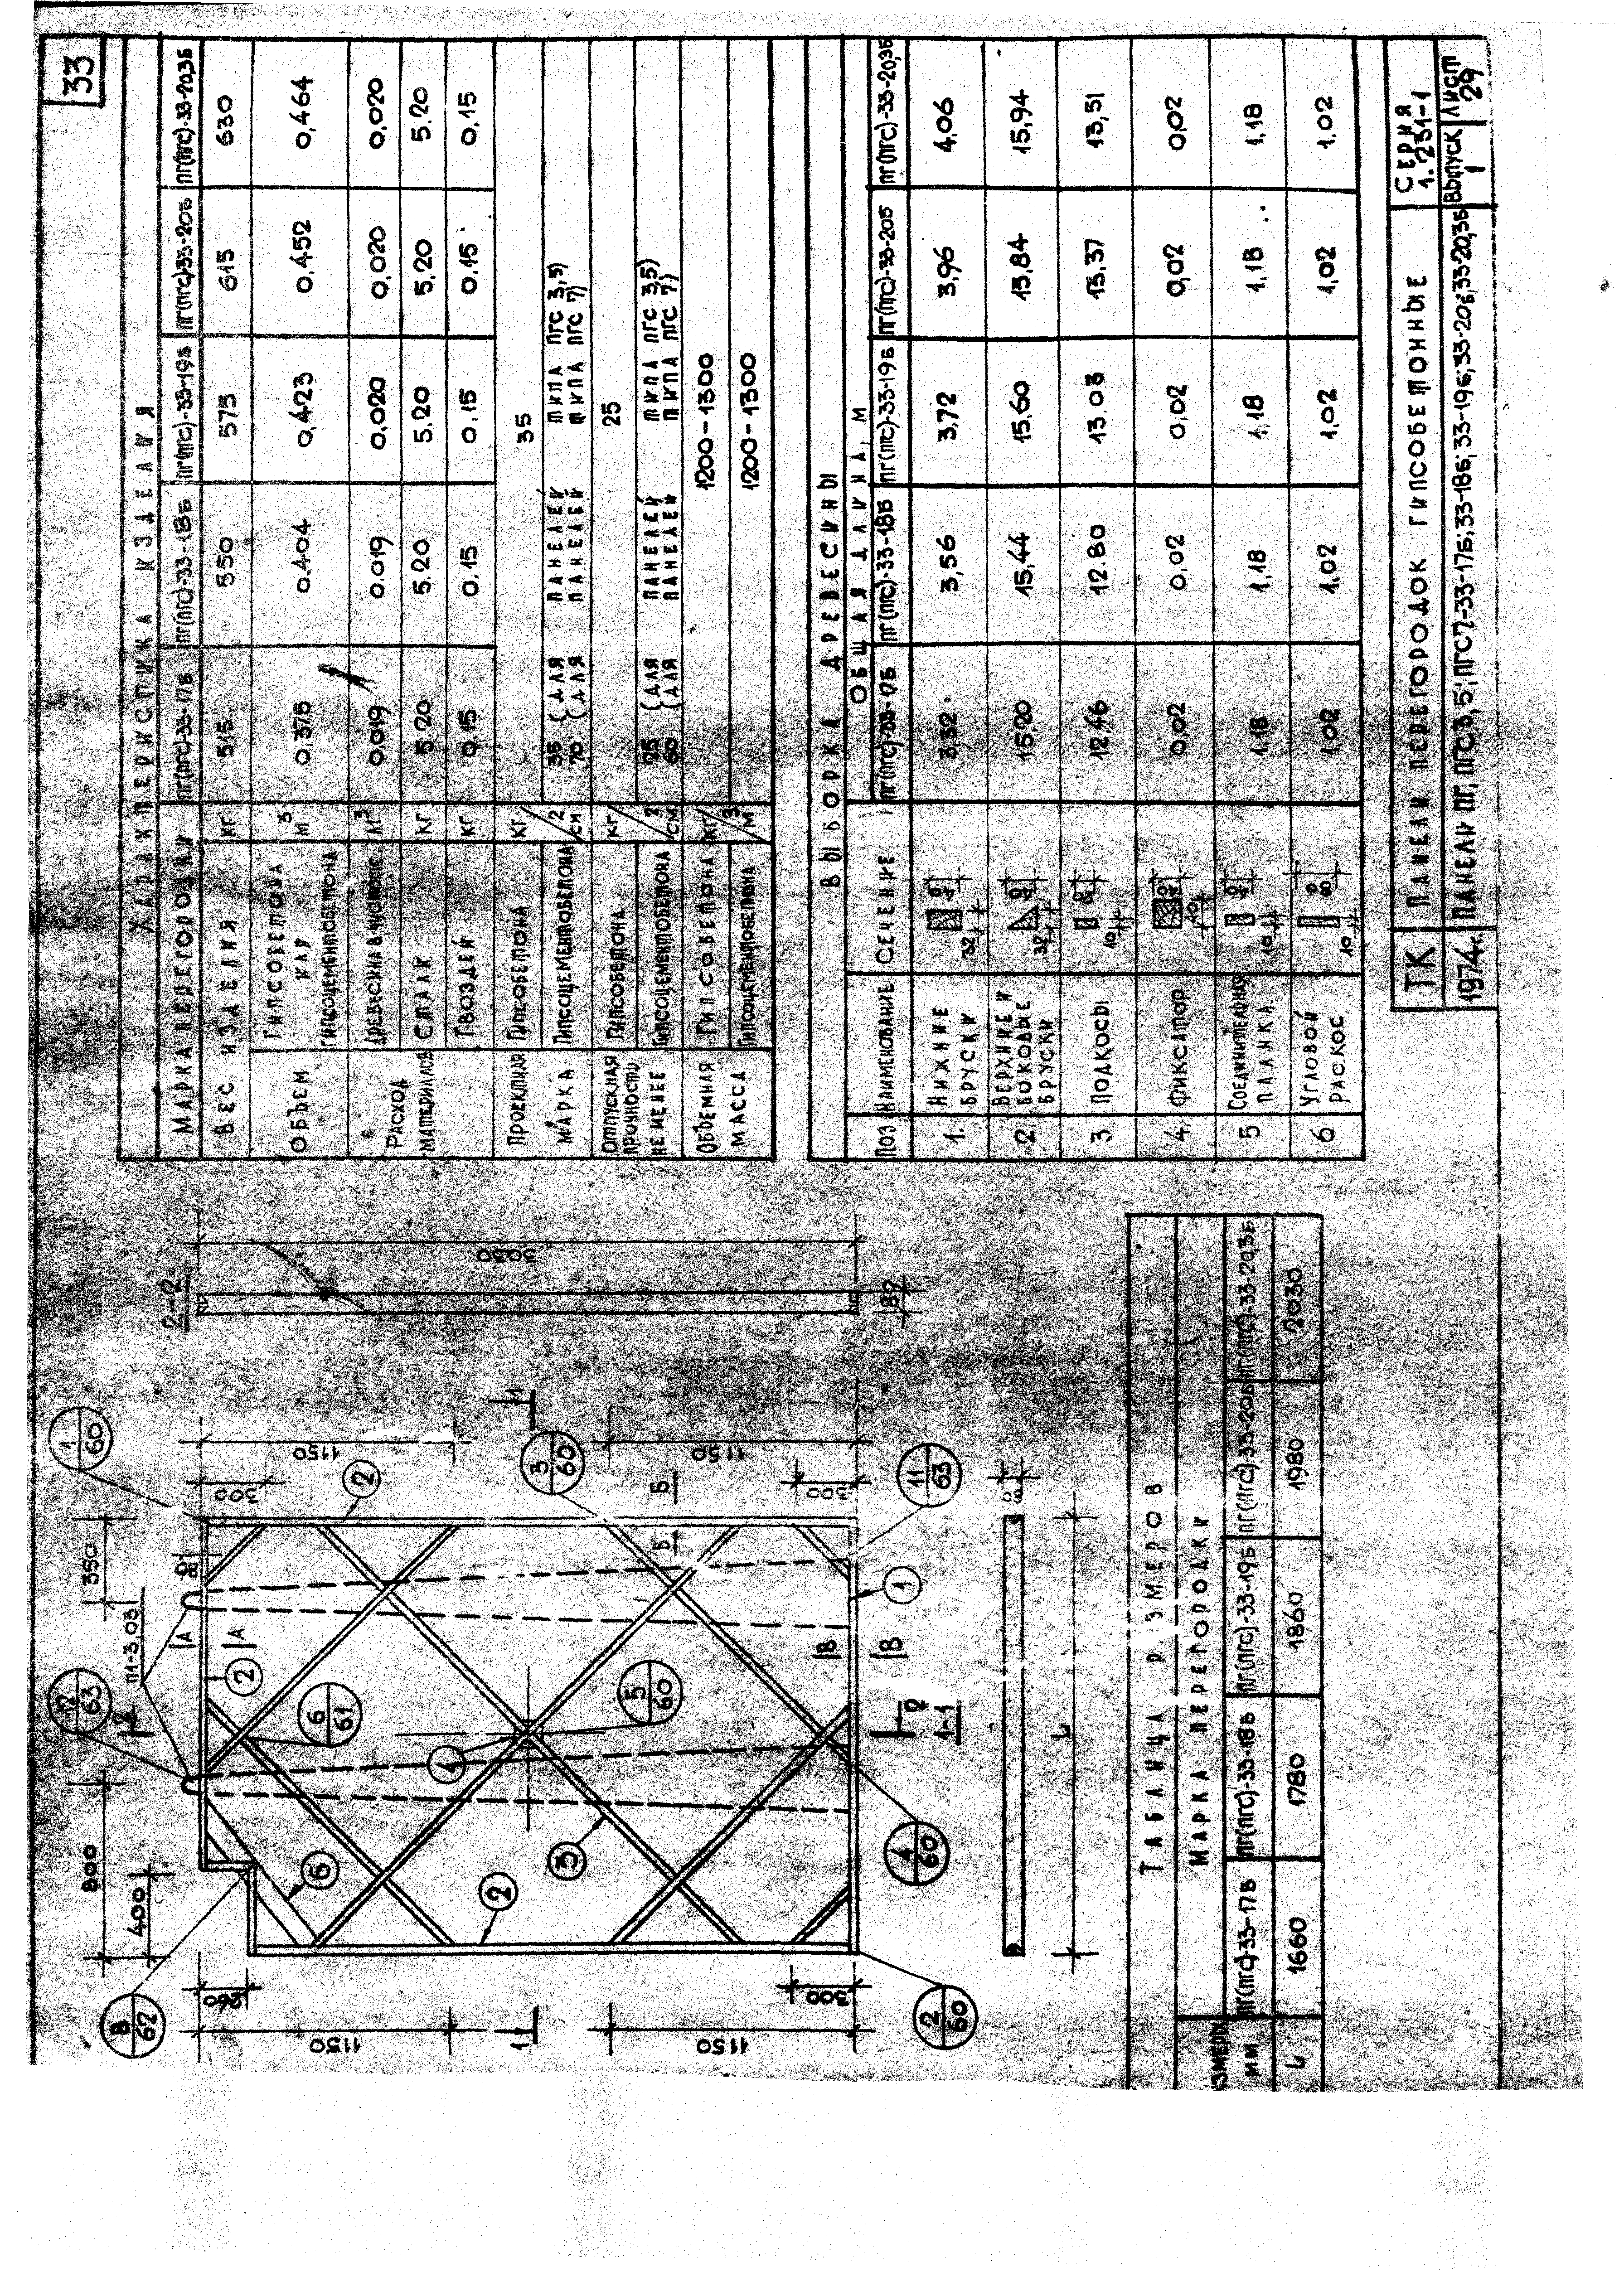 33
ХАРАКТЕРИСТИКА ИЗДЕЛИЯ
МАРКА ПЕРЕГОРОДКИ ПГ(ПГС)-33-17Б ПГ(ПГС)-33-18Б ПГ(ПГС)-33-19Б ПГ(ПГС)-33-20Б ПГ(ПГС)-33-20,3Б
ВЕС ИЗДЕЛИЯ КГ 515 550 575 615 630
ОБЪЕМ ГИПСОБЕТОНА ИЛИ ГИПСОЦЕМЕНТОБЕТОНА М3 0,375 0.404 0,423 0.452 0,464
РАСХОД МАТЕРИАЛОВ
ДРЕВЕСИНА В ЧИСТОТЕ М3 0.019 0.019 0.020 0,020 0,020
СТАЛИ КГ 5.20 5.20 5.20 5,20 5.20
ГВОЗДЕЙ КГ 0.15 0.15 0.15 0.15 0.15
ПРОЕКТНАЯ МАРКА
ГИПСОБЕТОНА КГ/СМ2 35
ГИПСОЦЕМЕНТОБЕТОНА 35 (ДЛЯ ПАНЕЛЕЙ ТИПА ПГС 3,5)
70 (ДЛЯ ПАНЕЛЕЙ ТИПА ПГС 7)
ОТПУСКНАЯ ПРОЧНОСТЬ НЕ МЕНЕЕ
ГИПСОБЕТОНА КГ/СМ2 25
ГИПСОЦЕМЕНТОБЕТОНА 25 (ДЛЯ ПАНЕЛЕЙ ТИПА ПГС 3,5)
60 (ДЛЯ ПАНЕЛЕЙ ТИПА ПГС 7)
ОБЪЕМНАЯ МАССА
ГИПСОБЕТОНА КГ/М3 1200-1300
ГИПСОЦЕМЕНТОБЕТОНА 1200-1300
ВЫБОРКА ДРЕВЕСИНЫ
ПОЗ НАИМЕНОВАНИЕ СЕЧЕНИЕ ОБЩАЯ ДЛИНА, М
ПГ(ПГС)-33-17Б ПГ(ПГС)-33-18Б ПГ(ПГС)-33-19Б ПГ(ПГС)-33-20Б ПГ(ПГС)-33-20,3Б
1. НИЖНИЕ БРУСКИ 32 40 3.32 3,56 3,72 3,96 4,06
2 ВЕРХНИЕ И БОКОВЫЕ БРУСКИ 32 40 15,20 15,44 15.60 15,84 15,94
3 ПОДКОСЫ 10 12,46 12.80 13.03 13.37 13,51
4. ФИКСАТОР 10 0,02 0,02 0,02 0,02 0,02
5 СОЕДИНИТЕЛЬНАЯ ПЛАНКА 10 40 1.18 1,18 1,18 1.18 1.18
6 УГЛОВОЙ РАСКОС 10 80 1.02 1,02 1,02 1,02 1.02
ТК ПАНЕЛИ ПЕРЕГОРОДОК ГИПСОБЕТОННЫЕ СЕРИЯ 1.231-1
1974г. ПАНЕЛИ ПГ, ПГС3,5; ПГС7-33-17Б; 33-18Б; 33-19Б; 33-20Б; 33-20,3Б ВЫПУСК 1 ЛИСТ 29
8/62
800
400
12/63
П1-3,03
350
80
1/60
2-2
260
300
1150
1150
300
300
1150
1150
300
3030
80
А
А
Б
Б
В
В
1
1
2
2
2
2
2
6
6/61
4
3
5/60
3/60
1
2/60
4/60
11/63
1-1
80
L
ТАБЛИЦА РАЗМЕРОВ
МАРКА ПЕРЕГОРОДКИ
ЗМЕРЫ ММ. ПГ(ПГС)-33-17Б ПГ(ПГС)-33-18Б ПГ(ПГС)-33-19Б ПГ(ПГС)-33-20Б ПГ(ПГС)-33-20,3Б
L 1660 1780 1860 1980 2030